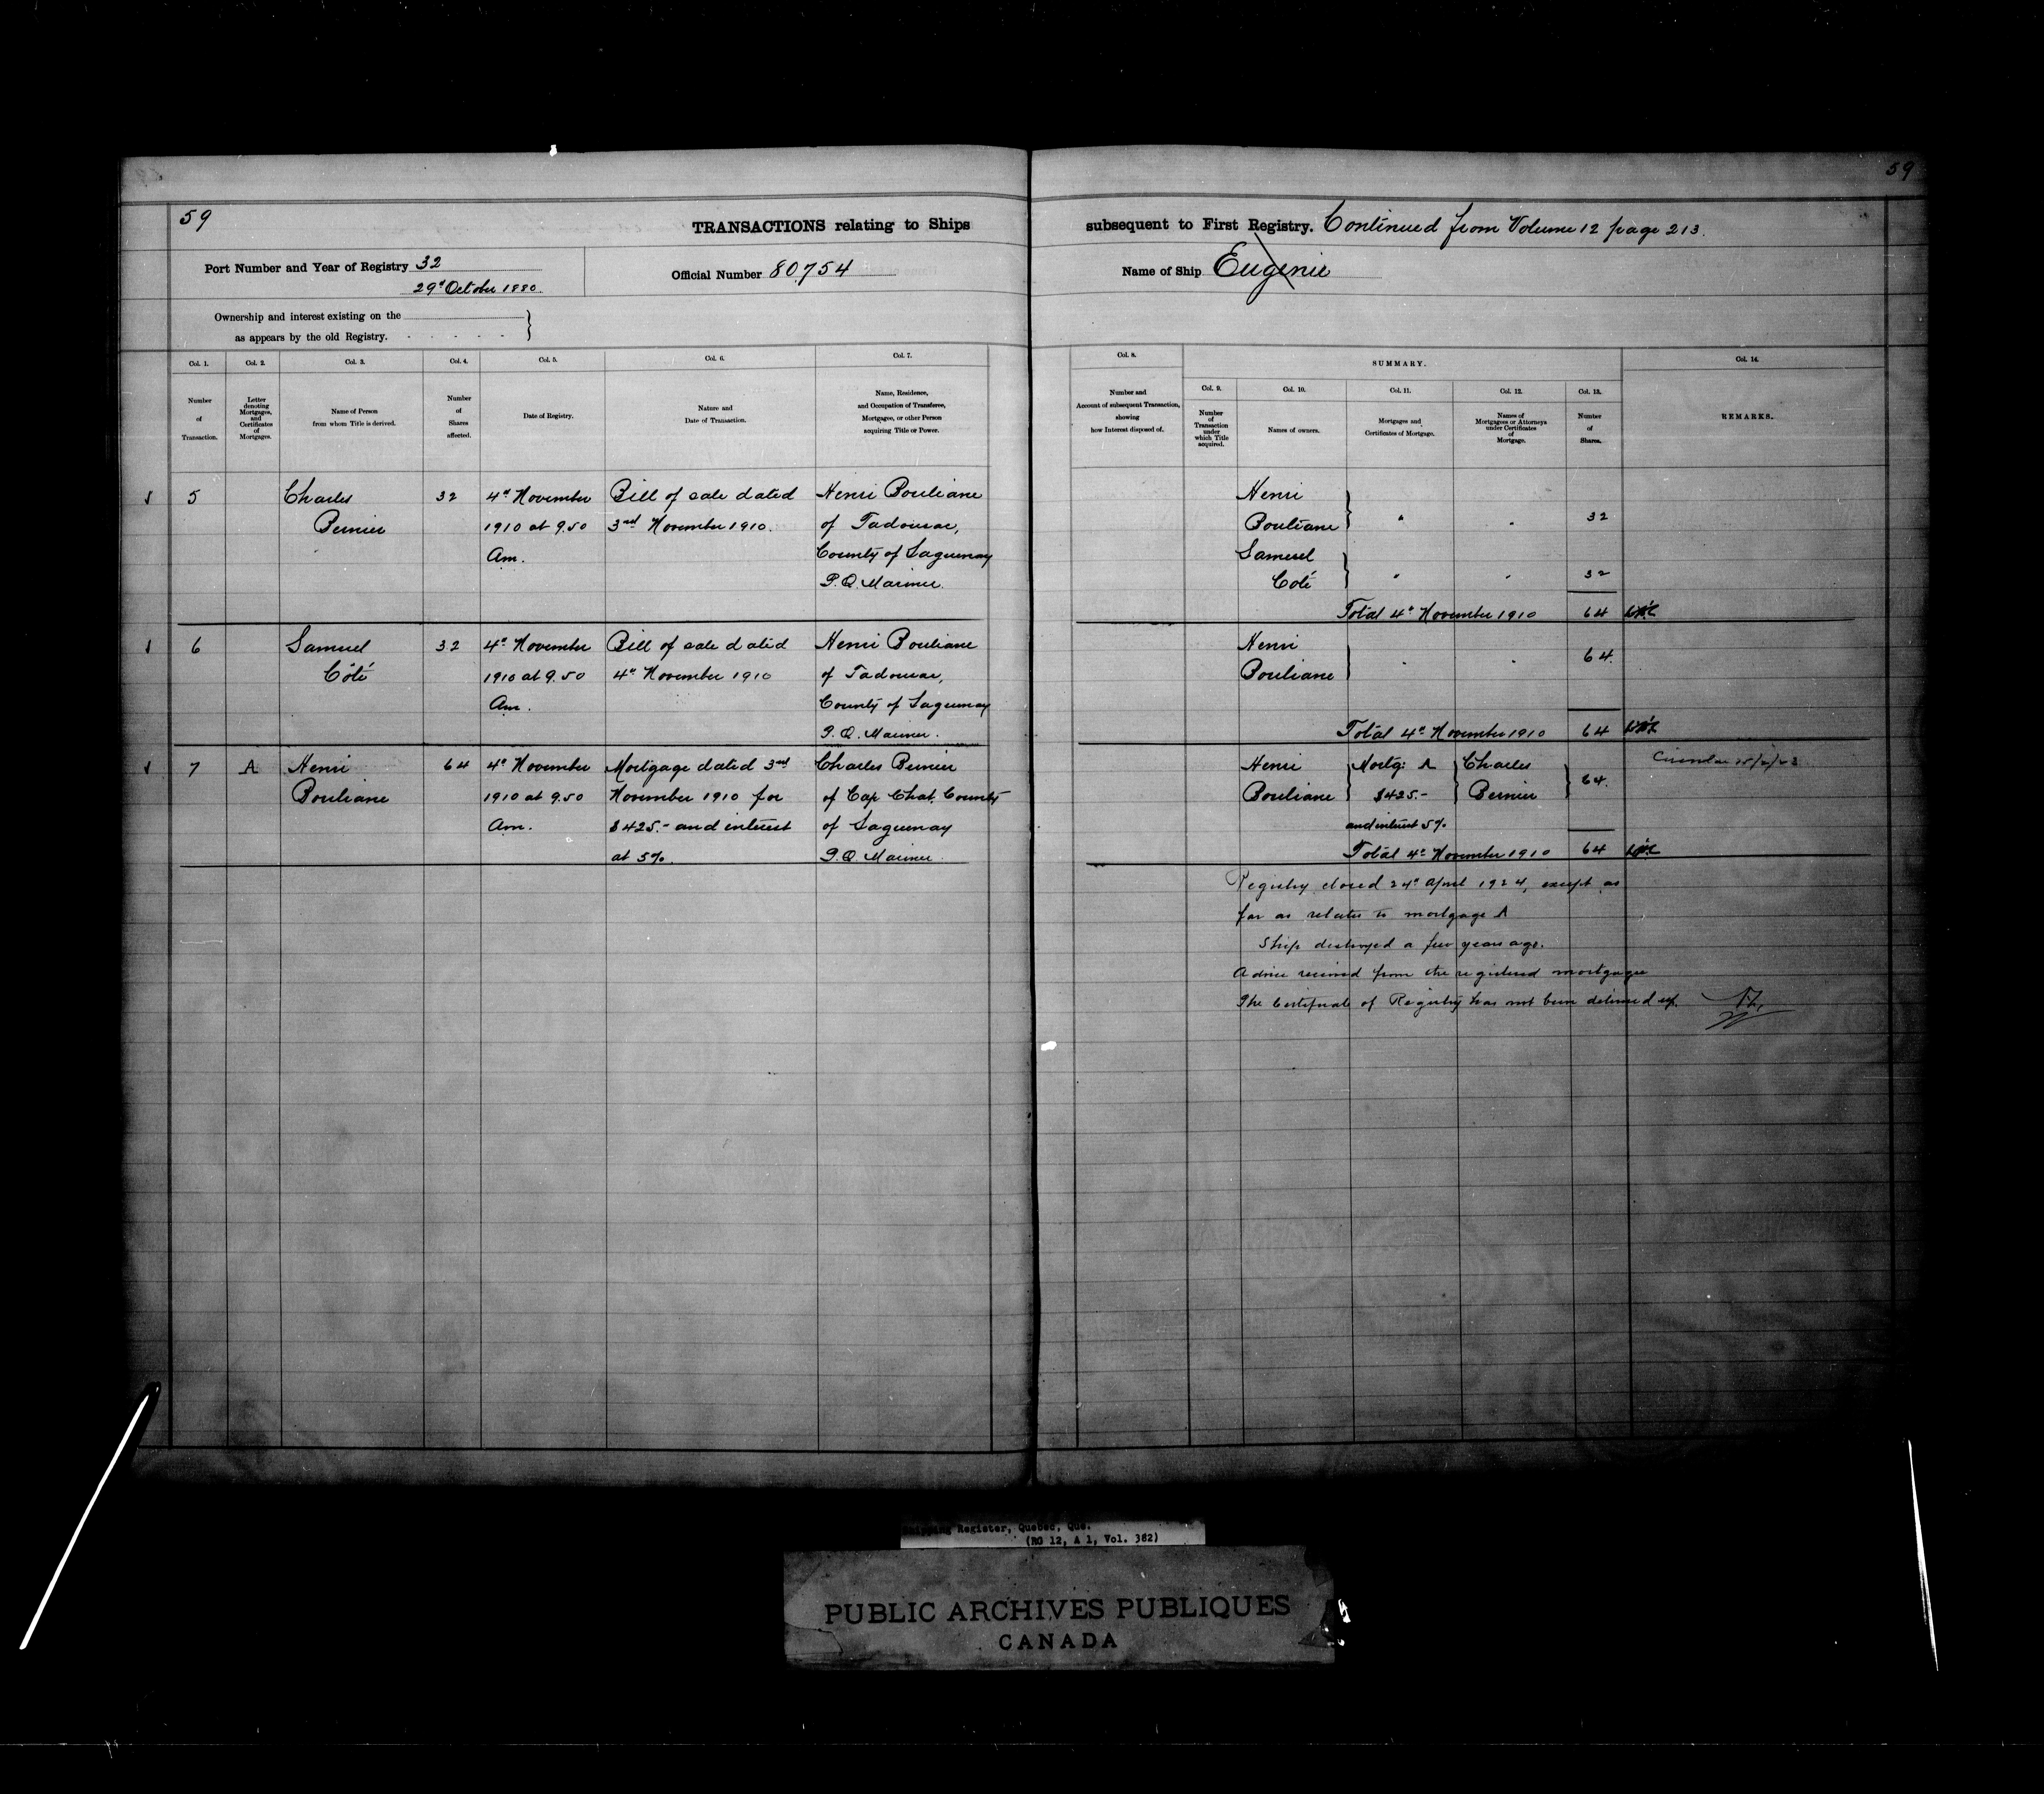 59
59
TRANSACTIONS relating to Ships subsequent to First Registry. Continued from Volume 12 page 213.
Port Number and Year of Registry 32
29th October 1880.
Official Number 80,754
Name of Ship Eugenie
Ownership and interest existing on the
as appears by the old Registry.
Col. 1.
Number
of
Transaction.
Col. 2.
Letter
denoting
Mortgages,
and
Certificates
of
Mortgages.
Col. 3.
Name of Person
from whom Title is derived.
Col. 4.
Number
of
Shares
affected.
Col. 5.
Date of Registry.
Col. 6.
Nature and
Date of Transaction.
Col. 7.
Name, Residence,
and Occupation of Transferee,
Mortgagee, or other Person
acquiring Title or Power.
Col. 8.
Number and
Account of subsequent Transaction,
showing
how Interest disposed of.
SUMMARY.
Col. 9.
Number
of
Transaction
under
which Title
acquired.
Col. 10.
Names of owners.
Col. 11.
Mortgages and
Certificates of Mortgage.
Col. 12.
Names of
Mortgagees or Attorneys
under Certificates
of
Mortgage.
Col. 13.
Number
of
Shares.
Col. 14.
REMARKS.
5
Charles
Bernier
32
4th November
1910 at 9.50
Am.
Bill of sale dated
3rd November 1910.
Henri Bouliane
of Tadousac,
County of Saguenay
P.Q. Mariner.
Henri
Bouliane
32
Samuel
Coté
32
Total 4th November 1910 64
6
Samuel
Côté
32
4th November
1910 at 9.50
Am.
Bill of sale dated
4th November 1910
Henri Bouliane
of Tadousac,
County of Saguenay
P.Q. Mariner.
Henri
Bouliane
64.
Total 4th November 1910 64
7
A
Henri
Bouliane
64
4th November
1910 at 9.50
Am.
Mortgage dated 3rd
November 1910 for
$425.- and interest
at 5%.
Charles Bernier
of Cap Chat, County
of Saguenay
P.Q. Mariner.
Henri
Bouliane
Mortg: A
$425.-
and interest 5%
Charles
Bernier
64.
Circular
Total 4th November 1910 64
Registry closed 24th April 1924, except as
far as relates to mortgage A
Ship destroyed a few years ago.
Advice received from the registered mortgagee
The Certificate of Registry has not been delivered up.
Shipping Register, Quebec, Que.
(RG 12, A 1, Vol. 382)
PUBLIC ARCHIVES PUBLIQUES
CANADA